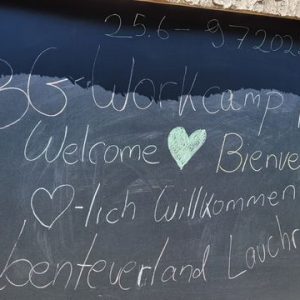 25.6 - 9 7 202
BG-Workcamp
Welcome ♥ Bienve
♡-lich Willkommen
benteuerland Lauchr